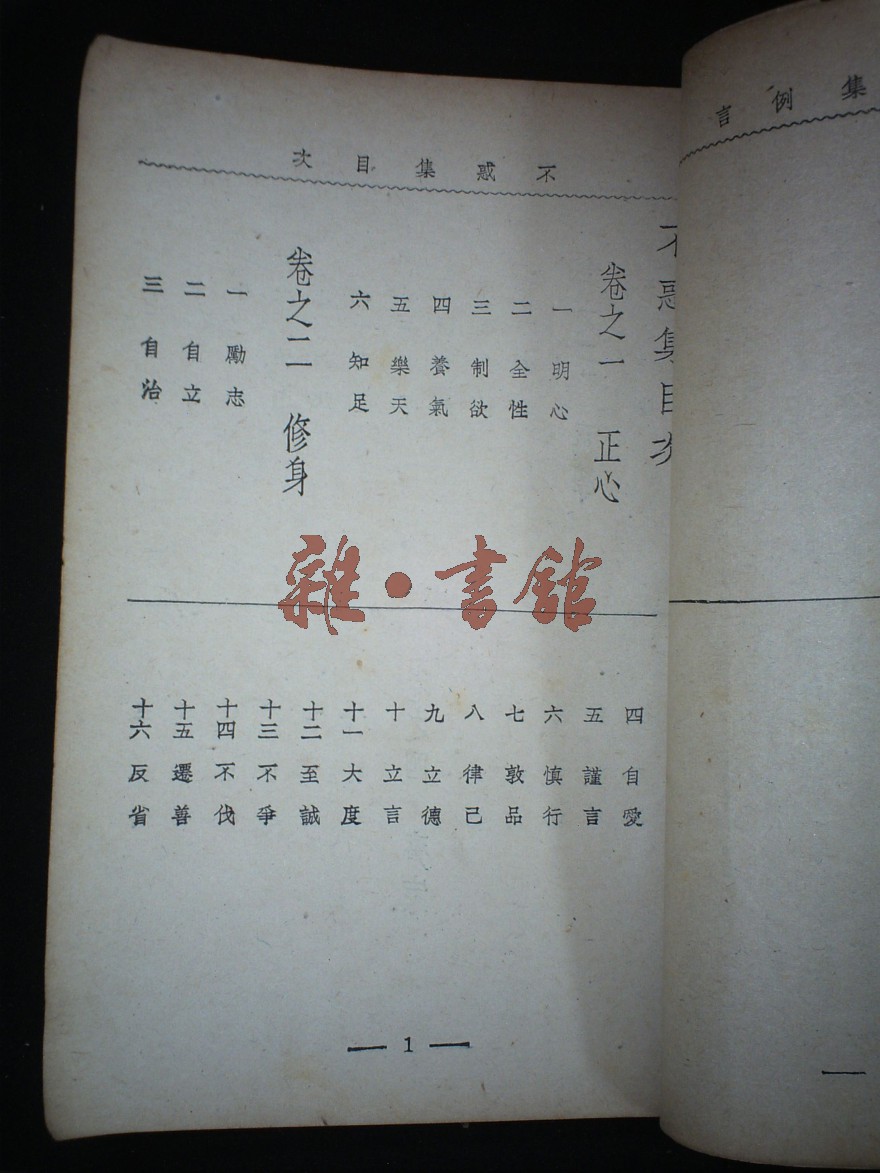 集例言
不惑集目次
不惑集目次
卷之一 正心
一 明心
二 全性
三 制欲
四 養氣
五 樂天
六 知足
卷之二 修身
一 勵志
二 自立
三 自治
四 自愛
五 謹言
六 慎行
七 敦品
八 律己
九 立德
十 立言
十一 大度
十二 至誠
十三 不爭
十四 不伐
十五 遷善
十六 反省
雜·書館
1